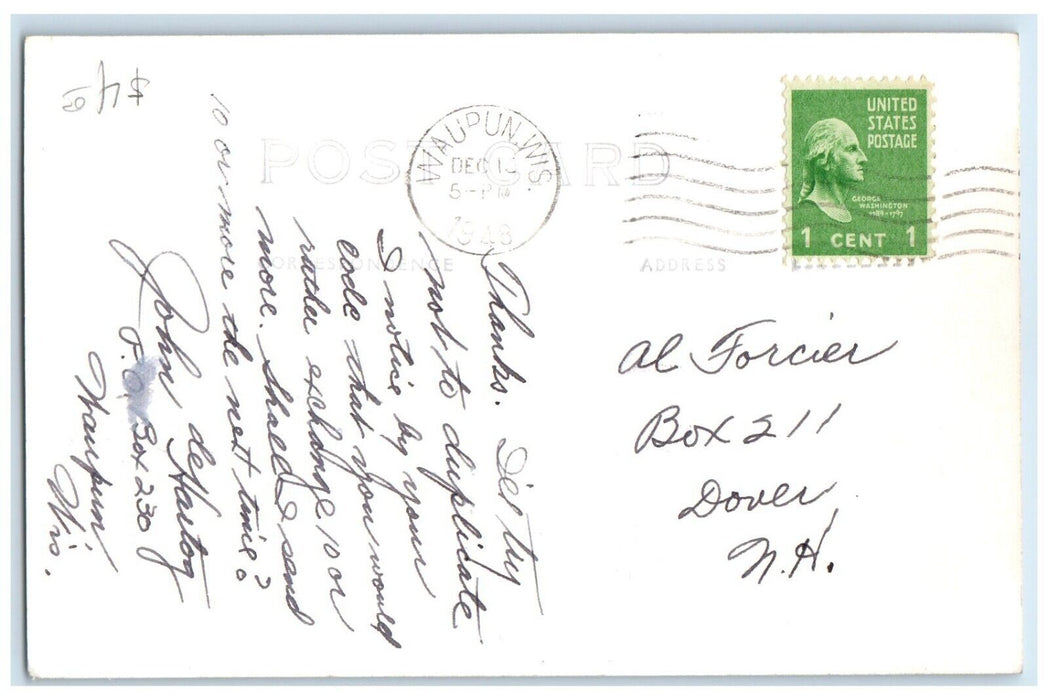 $4
POST CARD
WAUPUN, WIS.
DEC 1
5-PM
1948
UNITED
STATES
POSTAGE
GEORGE
WASHINGTON
1789-1797
1 CENT 1
CORRESPONDENCE
ADDRESS
Thanks. I'll try
not to duplicate
I notice by your
code that you would
rather exchange 10 or
more. Shall I send
10 or more the next time?
John deHartog
P.O. Box 230
Waupun
Wis.
Al Forcier
Box 211
Dover
N.H.